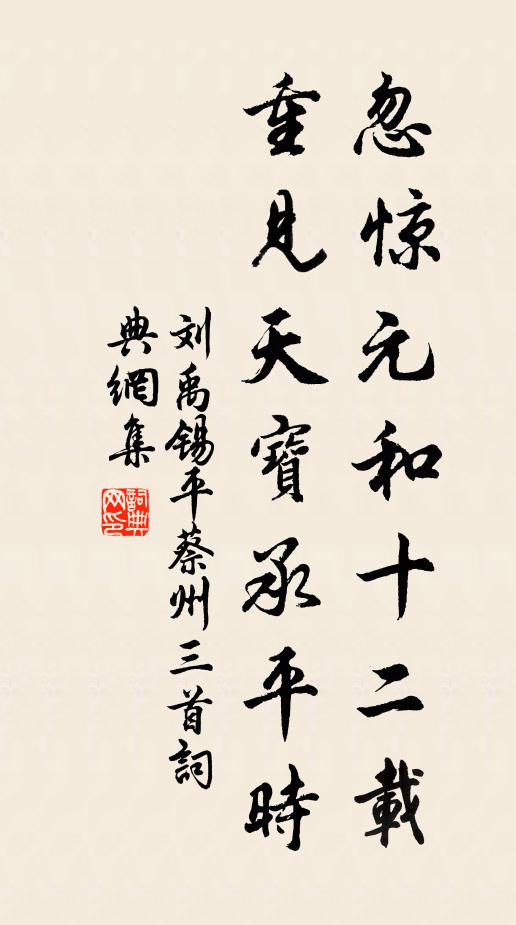 忽惊元和十二載
重見天寶承平時
刘禹锡平蔡州三首詞
典網集
詞典網印